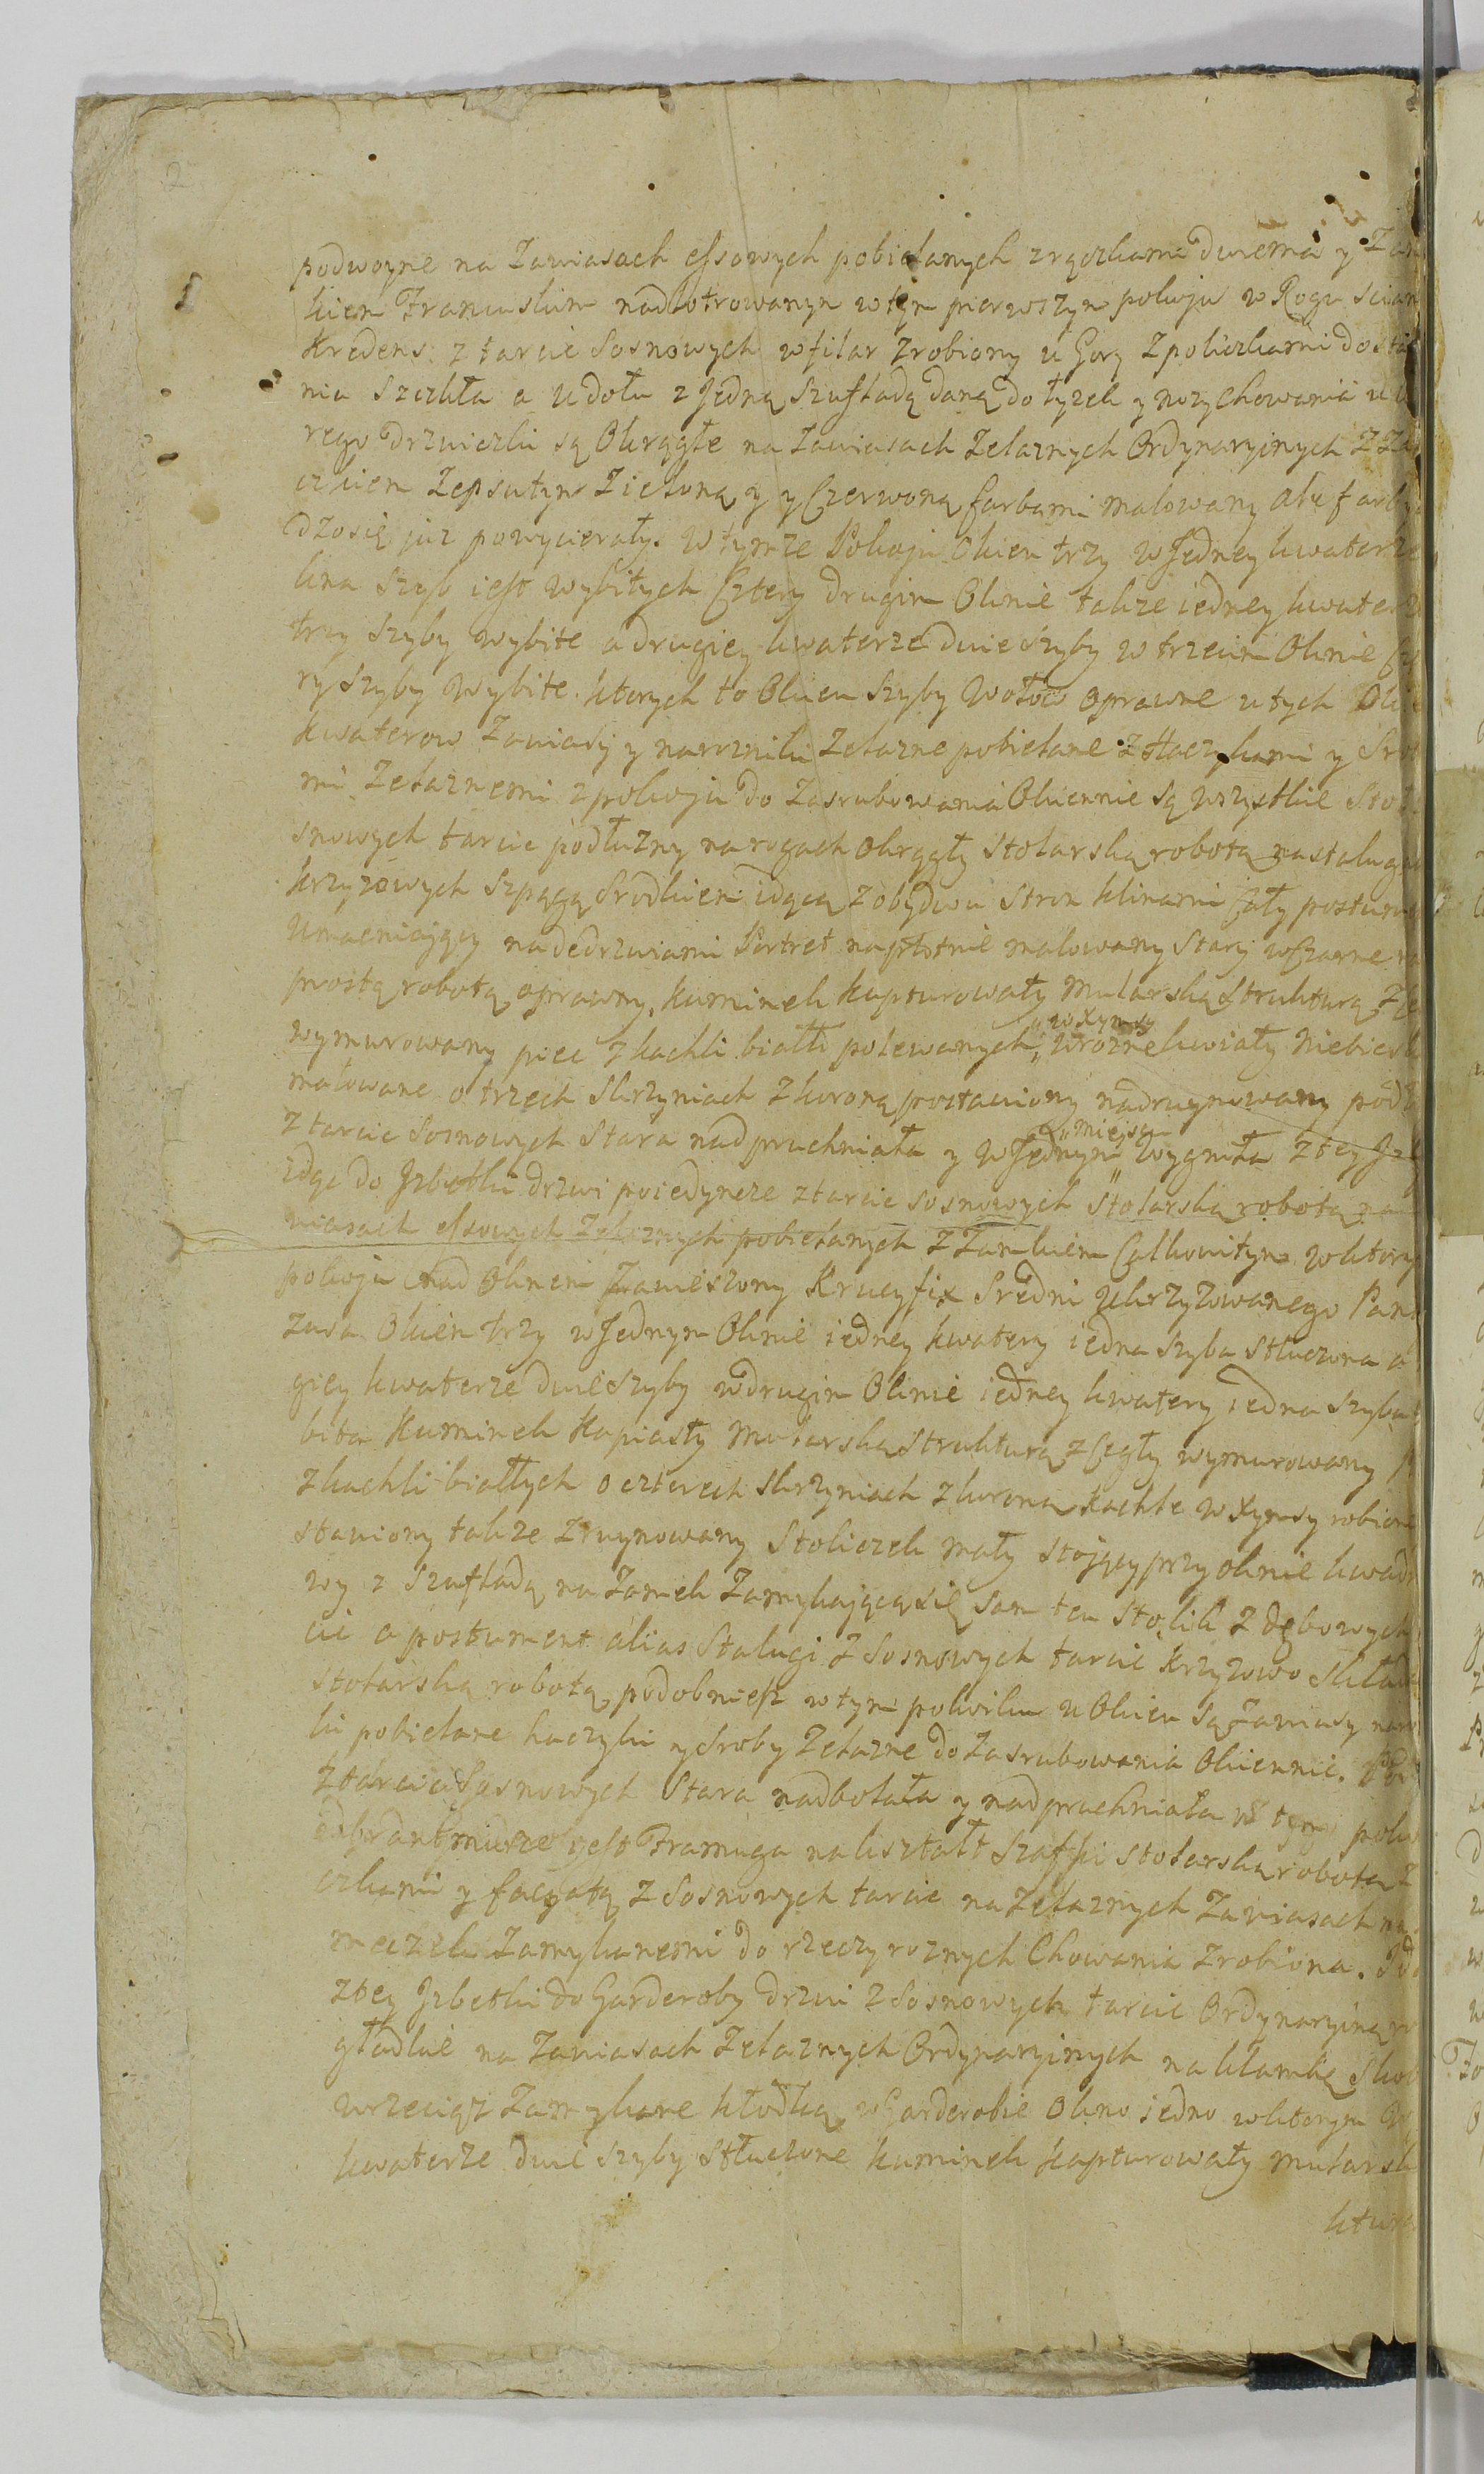 2
podwoyne na Zawiasach essowych pobielanych z rączkami dwiema y Zam
kiem Francuskim nadlotrowanym w tym pierwszym pokoju w Rogu scian
Kredens z tarcic Sosnowych w filar zrobiony u Gory z policzkami do sta
nia szczkła a u dołu z Jedną Szufladą daną do łyzek y nozy chowania u
rego drzwiczki są Okrągłe na Zawiasach Zelaznych Ordynaryjnych z Za
czkiem Zepsutym Zieloną y Czerwoną farbami malowany ale farby
dzo się juz powycierały. W tymze Pokoju Okien trzy w Jedney kwaterze
kna szyb iest wybitych Cztery drugim Oknie takze iedney kwaterze
trzy szyby wybite a drugiey kwaterze dwie szyby w trzecim Oknie Czt
ry szyby wybite. ktorych to Okien szyby w ołow oprawne u tych Okie
kwaterow Zawiasy y narozniki Zelazne pobielane z Haczykami y Srub
mi Zelaznemi z pokoju do Zasrubowania Okiennic są wszystkie Stoł
snowych tarcic podłuzny na rogach okrągły stolarską robotą na stalugach
krzyzowych szpągą srodkiem idącą z obydwu stron klinami Cały postum
Umacniający nadedrzwiami Portret na płotnie malowany Stary w Czarne ra
prostą robotą oprawny, kuminek kapturowaty Mularską strukturą z Ceg
wymurowany piec z kachli biało polewanych, „w Xymsy w rozne kwiaty Niebiesk
malowane o trzech skrzyniach z koroną postawiony nadruynowany podł
z tarcic sosnowych Stara nadpruchniała y w Jednym „miejscu wygniła z tey Jz
idąc do Jzbetki drzwi poiedyncze z tarcic sosnowych Stolarską robotą na
wiasach essowych Zelaznych pobielanych z Zamkiem Całkowitym w ktorym
pokoju nad Oknem Zawieszony Krucyfix Sredni Ukrzyzowanego Pana
zusa Okien trzy w Jednym Oknie iedney kwatery iedna szyba stłuczona a
giey kwaterze dwie szyby w drugim Oknie iedney kwatery iedna szyba
bita Kuminek Kapiasty Mularską strukturą z Cegły wymurowany
z kachli białłych o czterech skrzyniach z koroną kachle w Xymsy robione
stawiony takze zruynowany Stoliczek mały stojący przy oknie kwadr
wy z Szufladą na Zamek Zamykającą się sam ten stolik z dębowych
cic a postument alias Stalugi z Sosnowych tarcic krzyzowo składa
stolarską robotą, podobniesz w tym pokoiku u Okien są Zawiasy naro
ki pobielane haczyki y Sroby Zelazne do Zasrubowania Okiennic. Pod
z tarcic Sosnowych Stara nadbolała y nadpruchniała w tym pok
jest Framuga na kształt szaffy stolarską robotą z
czkami y facyatą z Sosnowych tarcic na Zelaznych Zawiasach na
meczek Zamykanemi do rzeczy roznych Chowania zrobiona. Jd
z tey Jzbetki do Garderoby drzwi z Sosnowych tarcic Ordynaryiną ro
gładkie na Zawiasach Zelaznych Ordynaryjnych na klamkę Skob
wrzeciąz Zamykane kłodką, w Garderobie Okno jedno w ktorym
kwaterze dwie szyby stłuczone kuminek kapturowaty mularsk
ktur